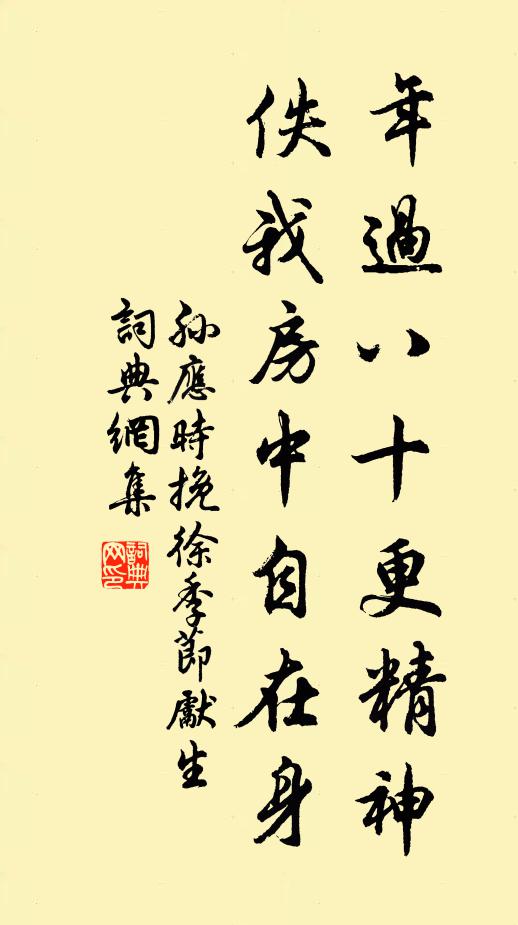 年過八十更精神
佚我房中自在身
孙應時挽徐季節獻生
詞典網集
詞典
网印